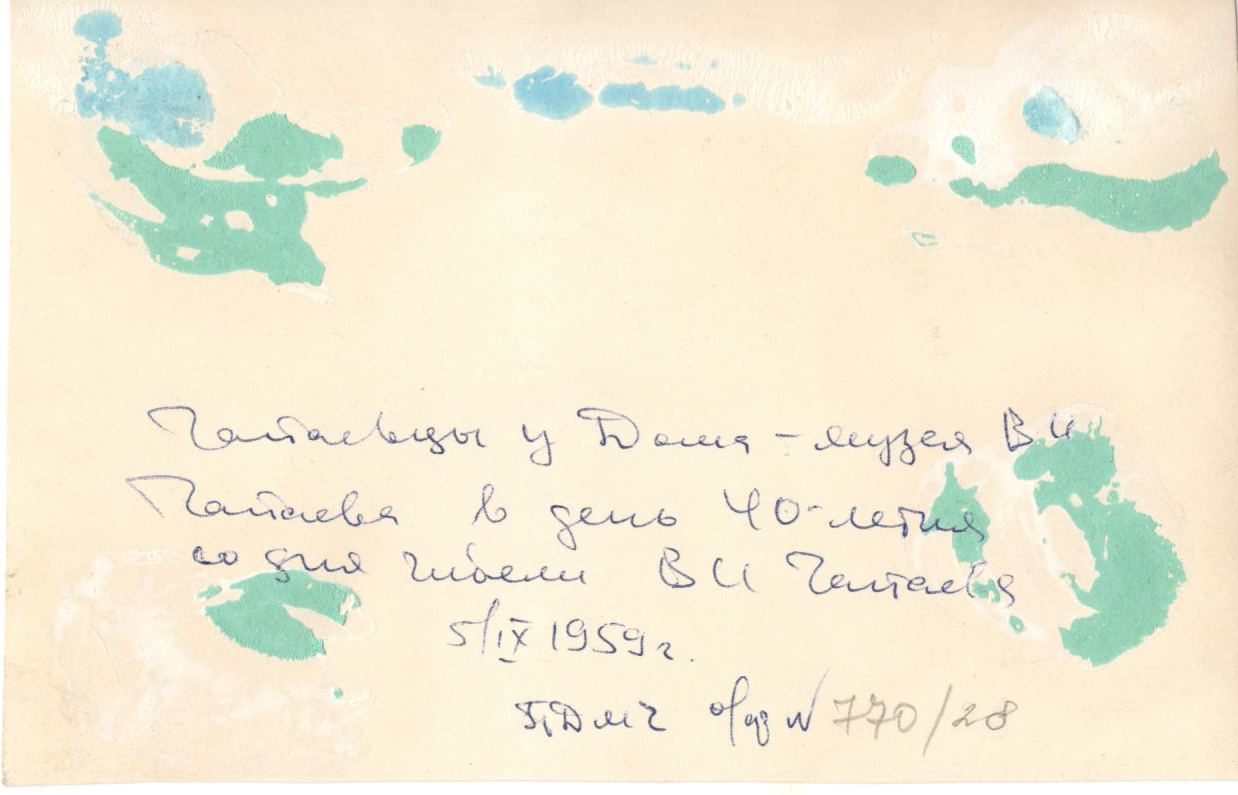 Чапаевцы у Дома-музея В И
Чапаева в день 40-летия
со дня гибели В И Чапаева
5/IX 1959 г.
ПДМЧ о/ф N 770/28